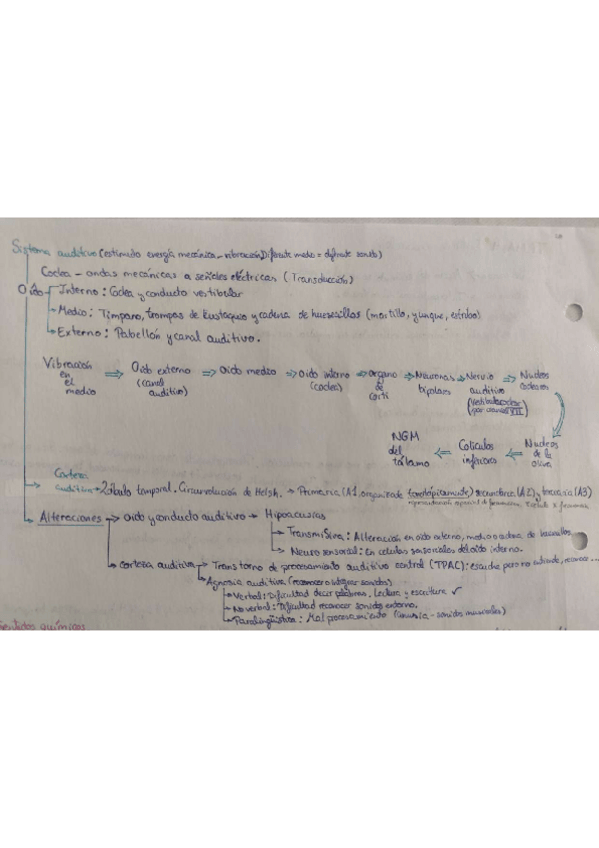 Sistema auditivo (estimulo energía mecánica - vibración Diferente medio = diferente sonido)
Coclea - ondas mecánicas a señales eléctricas (Transducción)
Oído Interno: Coclea y conducto vestibular
Medio: Timpano, trompas de Eustaquio y cadena de huesecillos (martillo, yunque, estribo)
Externo: Pabellón y canal auditivo.
Vibración en el medio ⇒ Oido externo (canal auditivo) ⇒ Oido medio ⇒ Oido interno (coclea) ⇒ organo de corti → Neuronas bipolares → Nervio auditivo (vestibulococlear par craneal VIII) ⇒ Nucleos cocleares
NGM del tálamo ⇐ Coliculos inferiores ⇐ Nucleos de la oliva
Corteza auditiva → Lóbulo temporal. Circunvolución de Helsh. → Primaria (A1, organizada tonotópicamente) secundaria (A2) y terciaria (A3)
representación espacial de frecuencias,
Alteraciones → oido y conducto auditivo → Hipoacusias
Transmisiva: Alteración en oído externo, medio o cadena de huesillos
Neurosensorial: En celulas sensoriales del oído interno.
corteza auditiva → Transtorno de procesamiento auditivo central (TPAC): escuche pero no entiende, reconoce...
Agnosia auditiva (reconocer o integrar sonidos)
Verbal: Dificultad decir palabras, Lectura y escritura ✓
No verbal: Dificultad reconocer sonidos externo.
Paralingüística: Mal procesamiento (amusia - sonidos musicales)
sentidos químicos